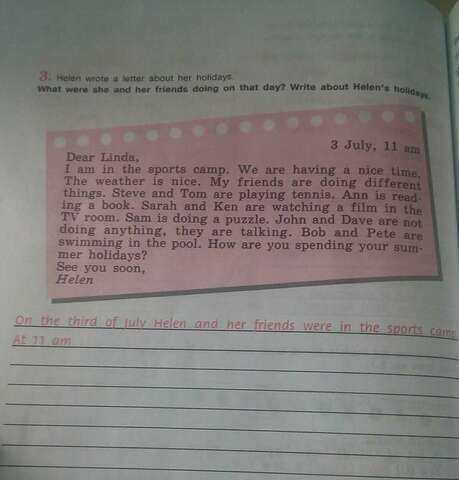 3. Helen wrote a letter about her holidays.
What were she and her friends doing on that day? Write about Helen's holidays.
3 July, 11 am
Dear Linda,
I am in the sports camp. We are having a nice time.
The weather is nice. My friends are doing different
things. Steve and Tom are playing tennis. Ann is read-
ing a book. Sarah and Ken are watching a film in the
TV room. Sam is doing a puzzle. John and Dave are not
doing anything, they are talking. Bob and Pete are
swimming in the pool. How are you spending your sum-
mer holidays?
See you soon,
Helen
On the third of July Helen and her friends were in the sports camp.
At 11 am